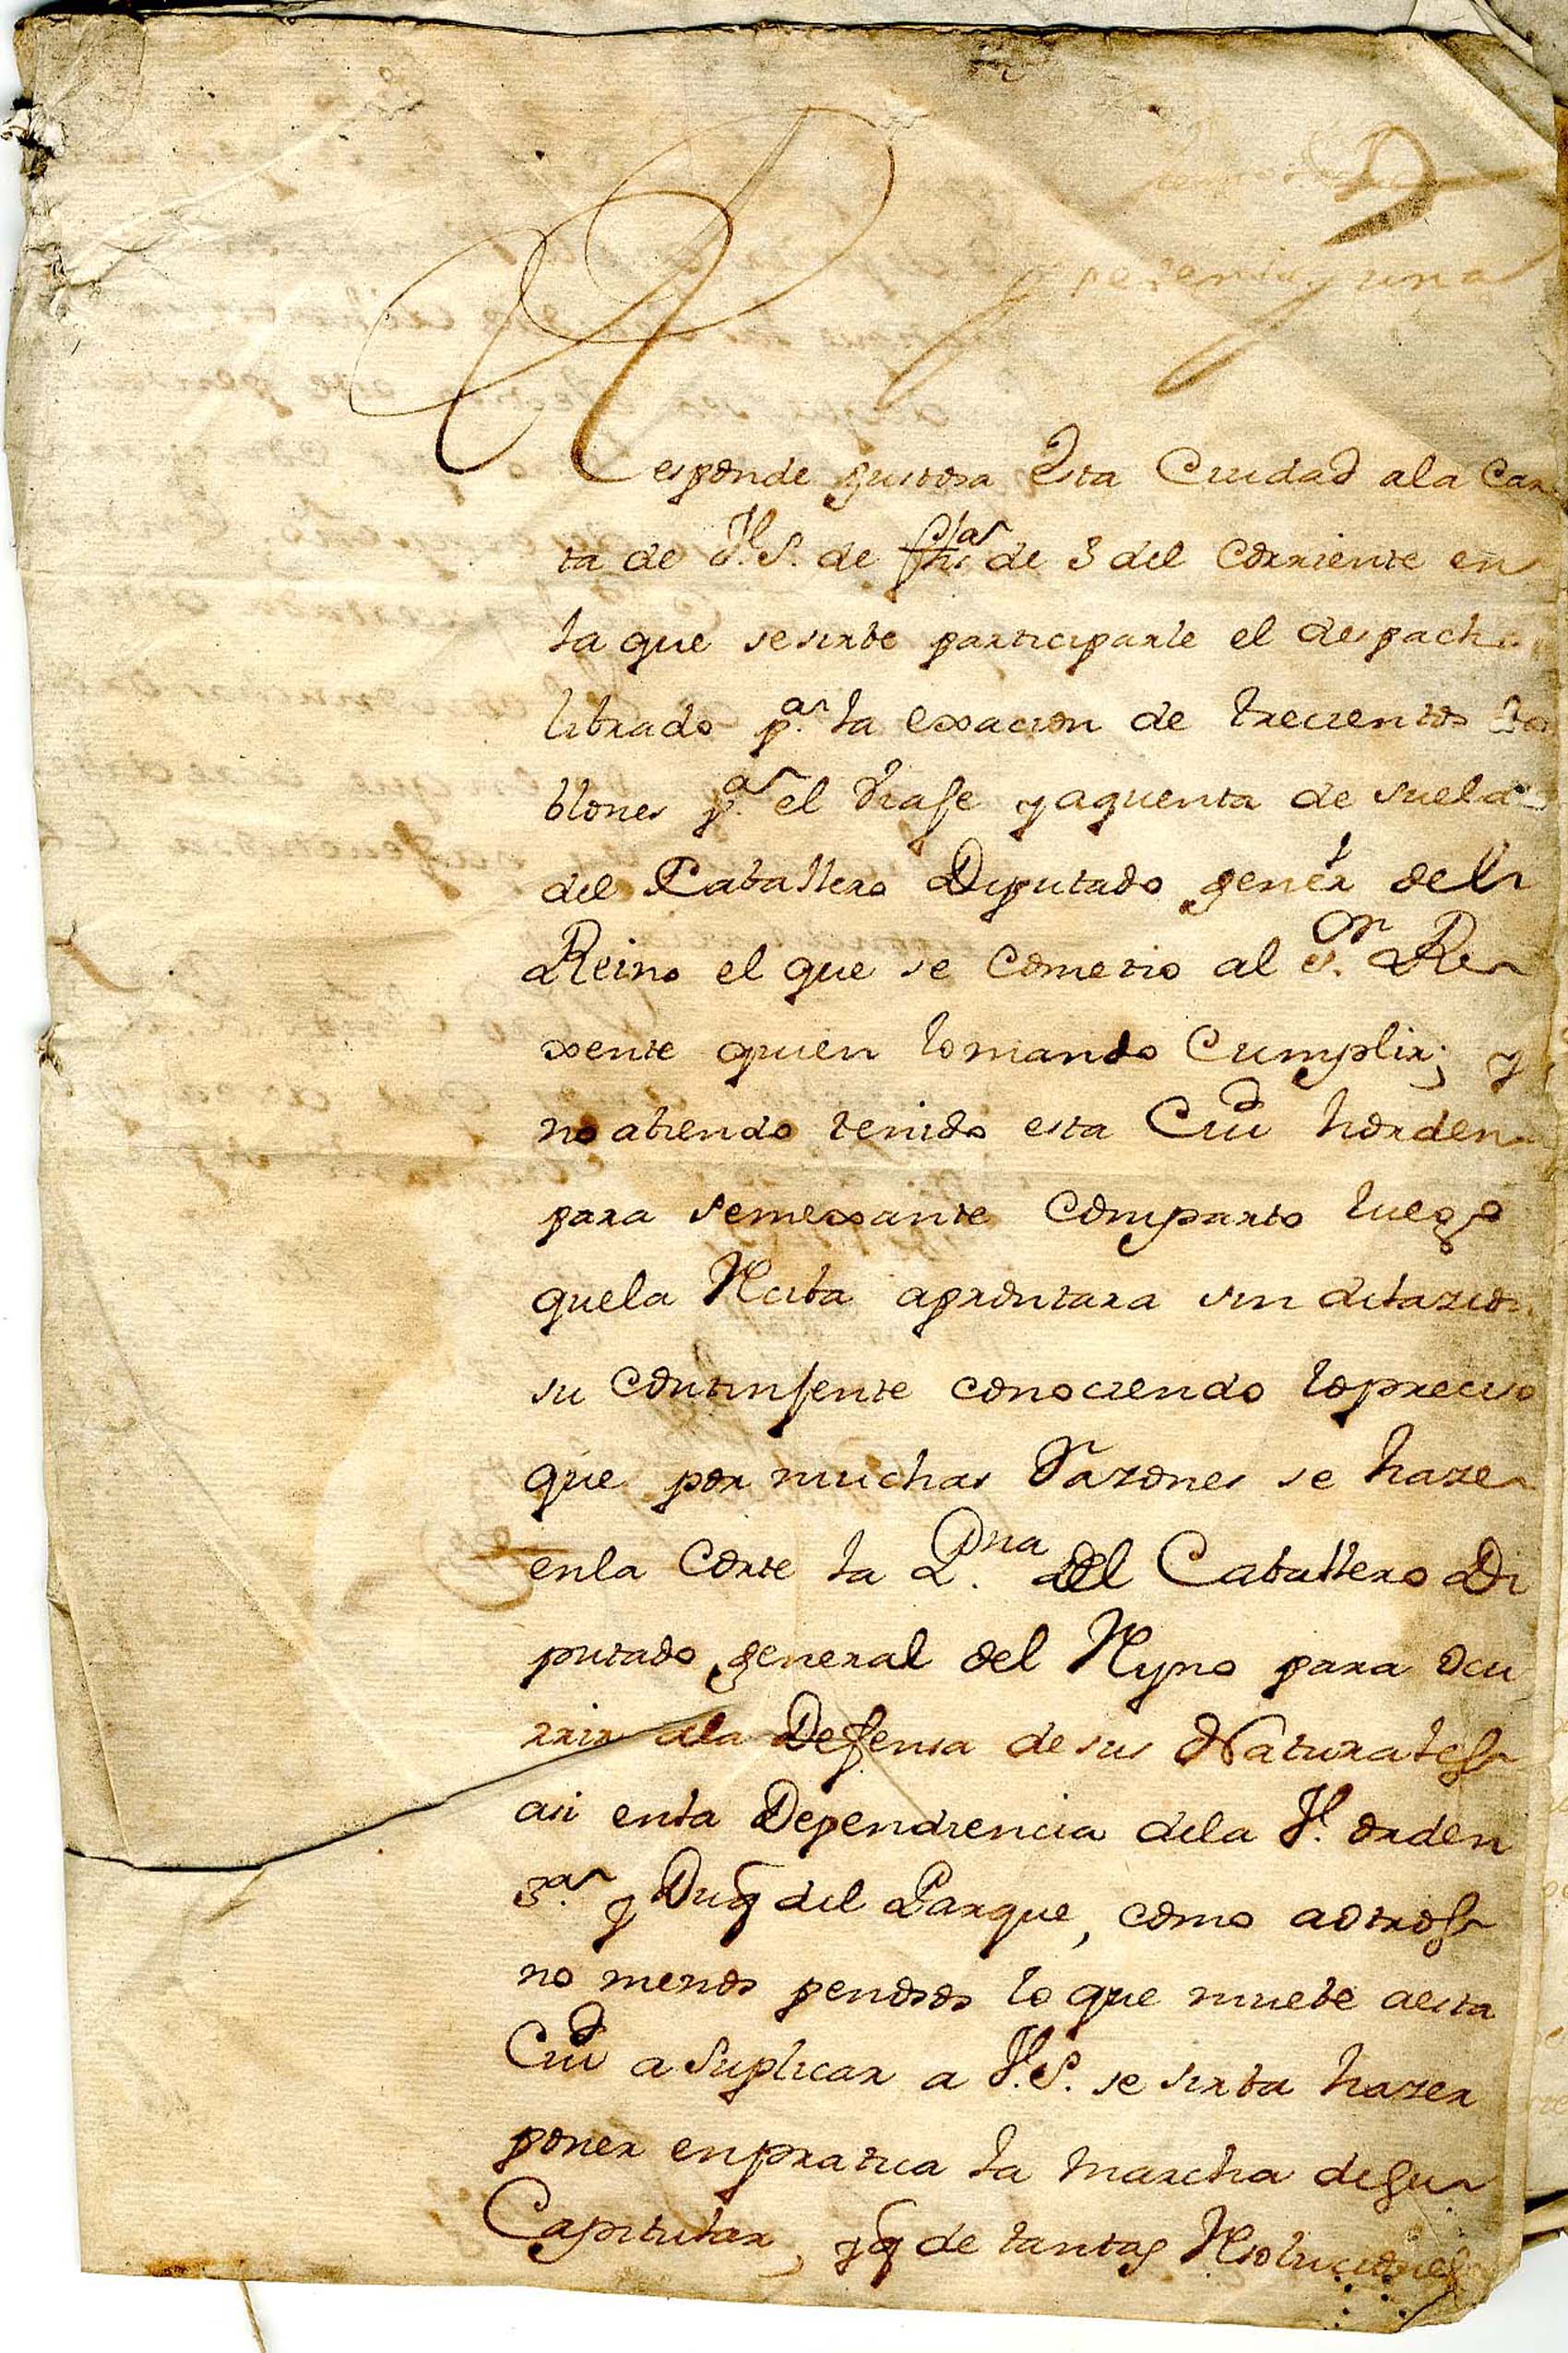 y setenta y una
Responde gustosa esta Ciudad ala Car
ta de V.S. de fhas de 3 del Corriente en
la que sesirbe participarle el despacho
librado pa. la exacion de trecientos do
blones pa. el viaje y aquenta de sueldo
del Caballero Diputado generl del
Reino el que se Cometio al sor. Re
xente quien lo mando Cumplir; y
no abiendo tenido esta Ciud horden
para semexante Comparto luego
quela Rciba aprontara sin dilazion
su Continjente conociendo lo preciso
que por muchas Razones se haze
enla Corte la Pna. del Caballero Di
putado general del Ryno para ocu
rrir ala Defensa de sus Naturales
asi enla Dependiencia dela V. orden
3a. y Duq del Parque, como aotros
no menos penosos lo que muebe aesta
Ciud a Suplicar a V.S. se sirba hazer
poner enpratica la marcha desu
Capitular, yq de tantas Rsoluciones